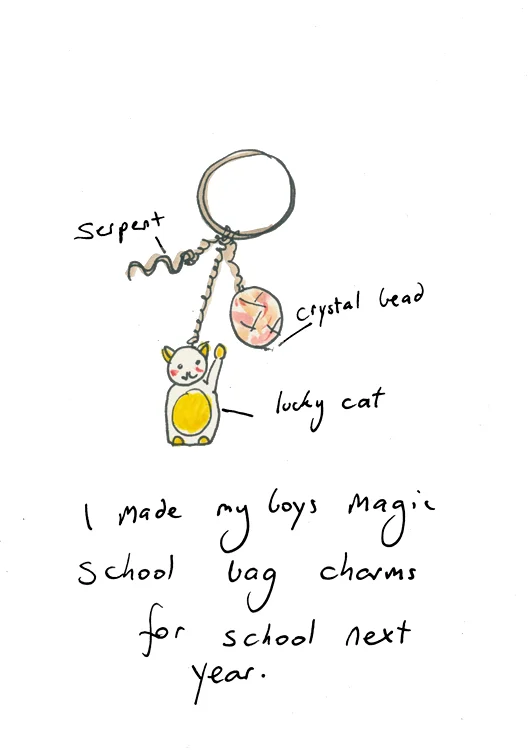 serpent
crystal bead
lucky cat
I made my boys magic
school bag charms
for school next
year.